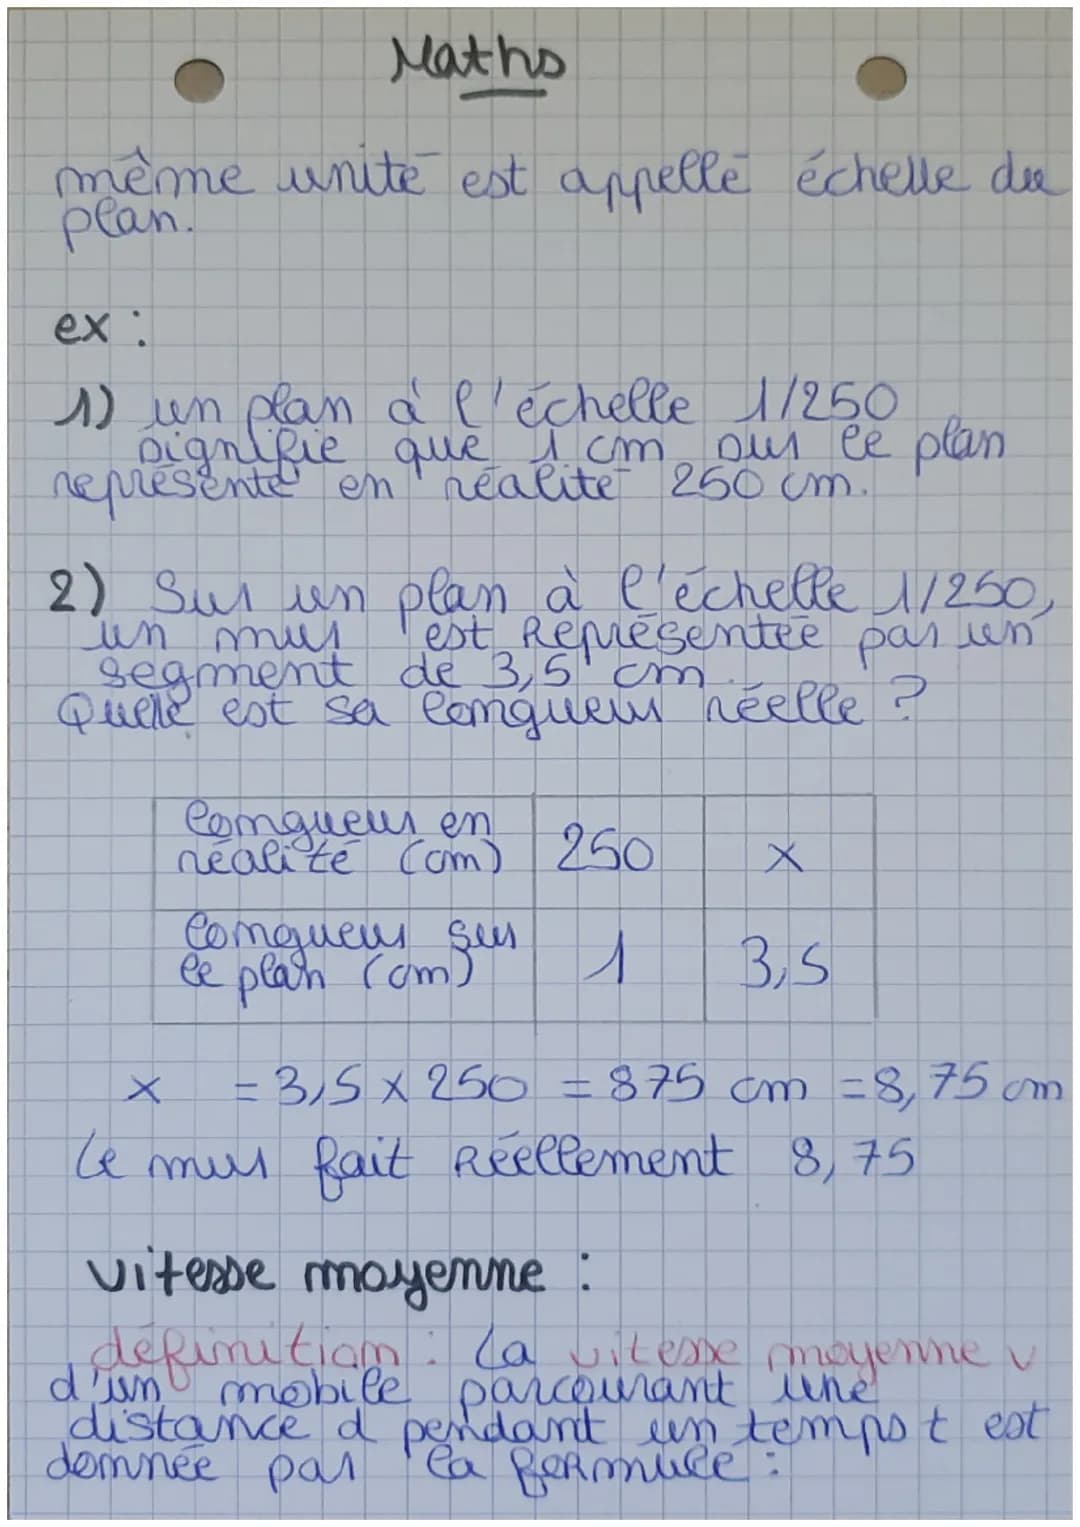 Maths
même unité est appellé échelle du
plan.
ex :
1) un plan à l'échelle 1/250
signifie que 1 cm sur le plan
représente en réalité 250 cm.
2) Sur un plan à l'échelle 1/250,
un mur est Représentée par un
segment de 3,5 cm.
Quelle est sa longueur réelle ?
longueur en
réalité (cm) 250 x
longueur sur
le plan (cm) 1 3,5
x = 3,5 x 250 = 875 cm = 8,75 cm
Le mur fait Réellement 8,75
vitesse moyenne :
définition : La vitesse moyenne v
d'un mobile parcourant une
distance d pendant un temps t est
donnée par la formule :